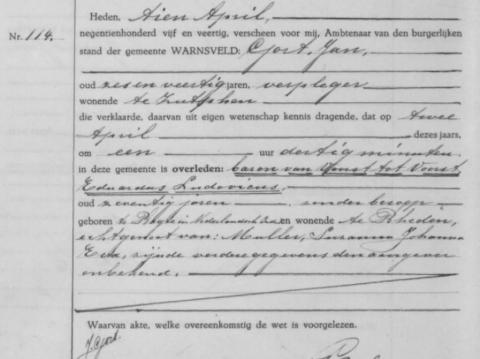 Heden, tien April,
Nr. 114. negentienhonderd vijf en veertig, verscheen voor mij, Ambtenaar van den burgerlijken
stand der gemeente WARNSVELD: Gort, Jan,
oud zes en veertig jaren, verpleger
wonende te Zutphen
die verklaarde, daarvan uit eigen wetenschap kennis dragende, dat op twee
April dezes jaars,
om een uur dertig minuten
in deze gemeente is overleden: baron van Voorst tot Voorst,
Eduardus Ludovicus,
oud zeventig jaren, zonder beroep
geboren te Nederlandsch en wonende te Rheden,
echtgenoot van: Muller, Susanna Johanna
Eva, zijnde verdere gegevens den aangever
onbekend.
Waarvan akte, welke overeenkomstig de wet is voorgelezen.